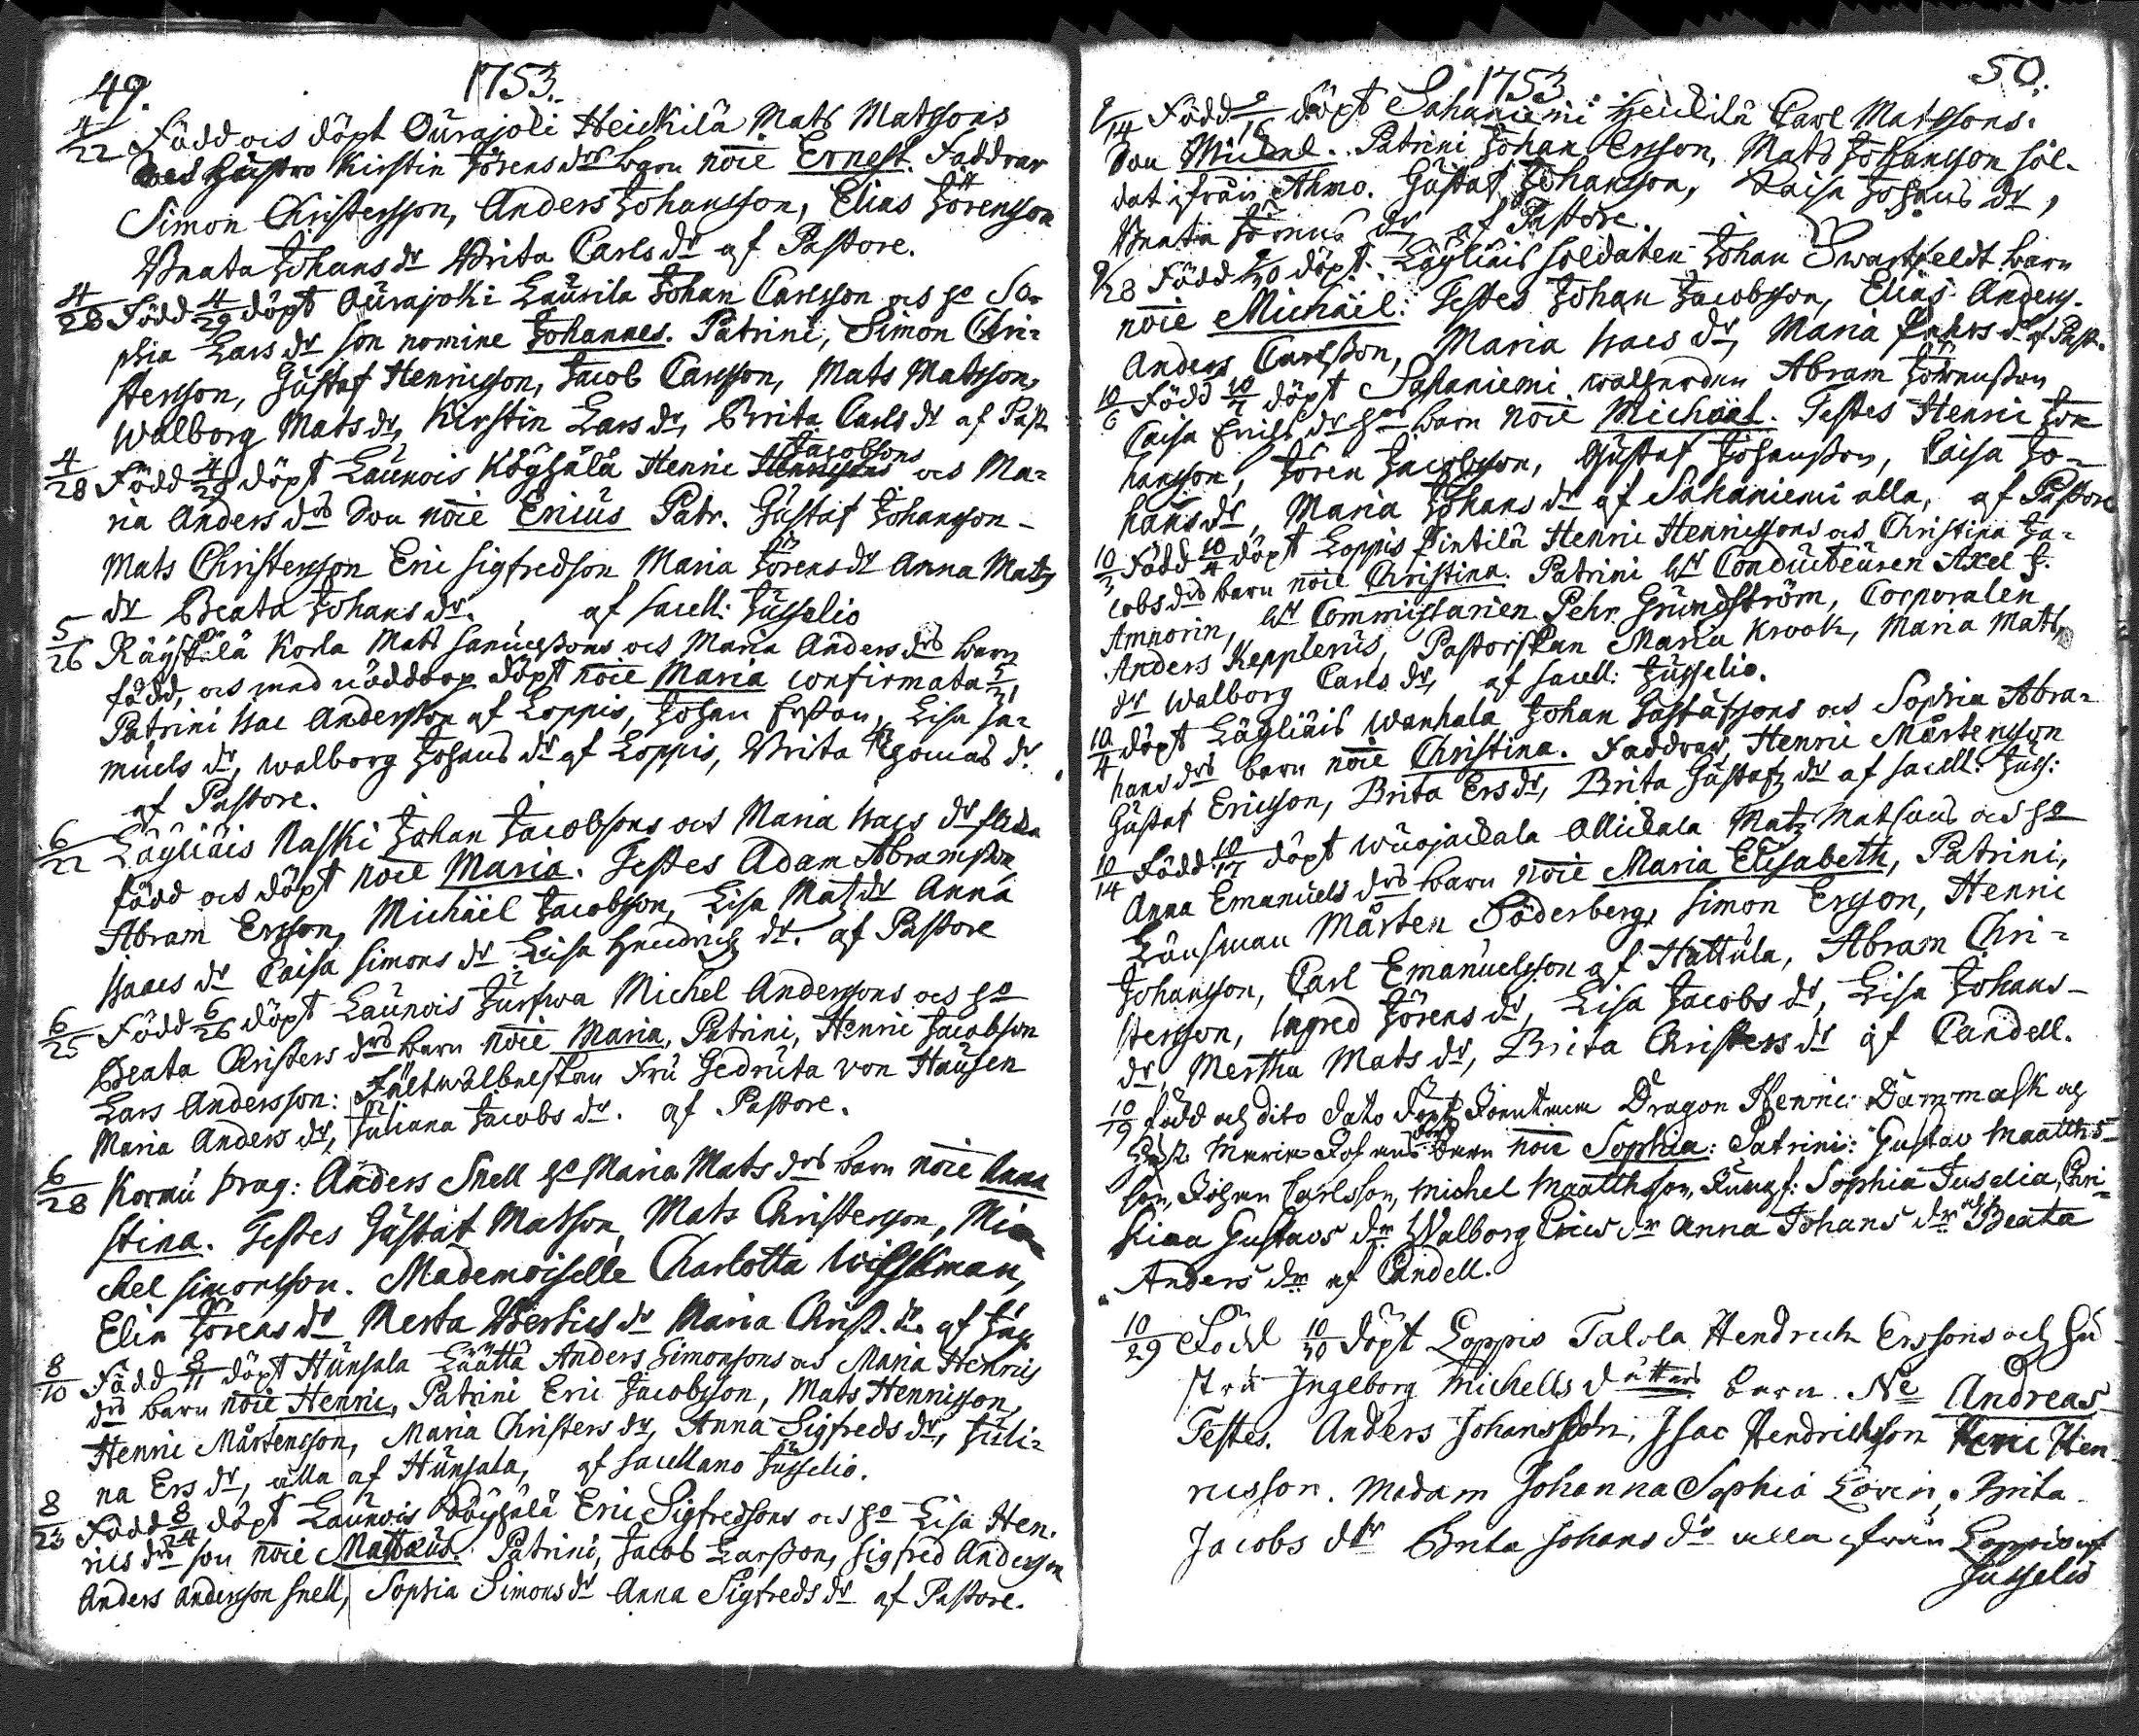 49. 1753.
4/22 Född ocs döpt Ourajoki Heickilä Mats Matssons
Hustro Kirstin Jörens drs barn noie Ernest. Faddrar
Simon Christersson, Anders Johansson, Elias Jörensson
Beata Johans dr Brita Carls dr af Pastore.
4/28 Född 4/29 döpt Ourajoki Laurila Johan Carlsson ocs Ho So-
phia Lars dr son nomine Johannes. Patrini, Simon Chri-
stersson, Gustaf Henricsson, Jacob Carsson, Mats Matsson,
Walborg Mats dr, Kirstin Lars dr, Brita Carls dr af Past.
Jacobsons
4/28 Född 4/29 döpt Launois Köyhälä Henric Henricsons ocs Ma-
ria Anders drs Son noie Ericus Patr. Gustaf Johansson
Mats Christersson Eric Sigfredson Maria Jörens dr Anna Mats
dr Beata Johans dr. af sacell: Jusselio
5/26 Räyskälä Korla Mats Samuelssons ocs Maria Anders drs barn
född, ocs med nöddop döpt noie Maria confirmata 5/31
Patrini Isac Andersson af Loppis, Johan Ersson, Lisa Sa-
muels dr, Walborg Johans dr af Loppis, Brita Thomas dr.
af Pastore.
6/22 Lägliäis Naski Johan Jacobsons ocs Maria Isacs dr flicka
född ocs döpt noie Maria. Testes Adam Abramsson,
Abram Ersson, Michäel Jacobsson, Lisa Mats dr Anna
Isaacs dr Caisa Simons dr Lisa Hendrichs dr. af Pastore
6/25 Född 6/26 döpt Launois Jurswa Michel Anderssons ocs Ho
Beata Christers drs barn noie Maria, Patrini, Henric Jacobson
Lars Andersson: Fältwäbelskan Fru Gedruta von Hausen
Maria Anders dr, Juliana Jacobs dr. af Pastore.
6/28 Kormu Drag: Anders Snell Ho Maria Mats drs barn noie Anna
stina. Testes Gustaf Matson, Mats Christersson, Mi-
chel Simonsson. Mademoiselle Charlotta
Elin Jörens dr Merta dr Maria Christ. dr. af
8/10 Född 8/11 döpt Hunsala Laättä Anders Simonsons ocs Maria Henrics
drs barn noie Henric, Patrini Eric Jacobsson, Mats Henricsson,
Henric Mårtensson, Maria Christers dr, Anna Sigfreds dr, Juli-
na Ers dr, alla af Hunsala, af sacellano Jusselio.
8/23 Född 8/24 döpt Launois Köyhälä Eric Sigfredsons ocs Ho Lisa Hen-
rics drs son noie Mattæus. Patrini, Jacob Larsson, Sigfred Andersson
Anders Andersson Snell, Sophia Simons dr Anna Sigfreds dr af Pastore.
50. 1753
9/14 Född 9/16 döpt Sahaniemi Heickilä Carl Matssons.
Son Michael. Patrini Johan Ersson, Mats Johansson sol-
dat ifrån Ahmo. Gustaf Johansson, Kaisa Johans dr,
Beata Jörens dr, af Pastore.
9/28 Född 9/30 döpt Lägliäis soldaten Johan Swartfeldt barn
noie Michäil: Testes Johan Jacobsson, Elias Anders-
Anders Carlsson, Maria Isacs dr, Maria dr af Past.
10/6 Född 10/7 döpt Sahaniemi wallherden Abram Jörensson
Caisa Erichs dr Hos barn noie Michäel. Testes Henric Jo-
hansson, Jören Jacobsson, Gustaf Johansson, Caisa Jo-
hans dr, Maria Johans dr af Sahaniemi alla, af Pastore
10/3 Född 10/4 döpt Loppis Pintilä Henric Henricssons ocs Christina Ja-
cobs drs barn noie Christina. Patrini Hr Conducteuren Axel J.
Amnorin, Hr Commissarien Pehr Grundström, Corporalen
Anders Kepplerus, Pastorskan Maria Krook, Maria Mats
dr Walborg Carls dr, af sacell: Jusselio.
10/4 döpt Lägliäis Wanhala Johan Gustafssons ocs Sophia Abra-
hams drs barn noie Christina. Faddrar, Henric Mårtensson
Gustaf Ericsson, Brita Ers dr, Brita Gustafs dr af sacell: Juss:
10/14 Född 10/17 döpt Wuojackala Ollickala Mats Matsons ocs Ho
Anna Emanuels drs barn noie Maria Elisabeth, Patrini,
Länsman Mårten Söderberg, Simon Ersson, Henric
Johansson, Carl Emanuelsson af Hattula, Abram Chri-
stersson, Ingred Jörens dr, Lisa Jacobs dr, Lisa Johans-
dr, Mertha Mats dr, Brita Christers dr af Candell.
10/19 född och dito dato döpt Dragon Henric Dammask och
Hust. Maria Johans drs barn noie Sophia: Patrini: Gustav Maatths-
son, Johan Carlsson, Michel Maatthsson, Jungf: Sophia Juselia, Chri-
stina Gustavs dr Walborg Erics dr Anna Johans dr och Beata
Anders dr af Candell.
10/29 Född 10/30 döpt Loppis Talola Hendrich Erssons och Hu
stru Ingeborg Michells dätters barn. Ne Andreas
Testes. Anders Johansson, Isac Hendrichson Henric Hen
ricsson. Madam Johanna Sophia Lovin, Brita
Jacobs dtr Brita Johans dr alla ifrån Loppis af
Jusselio